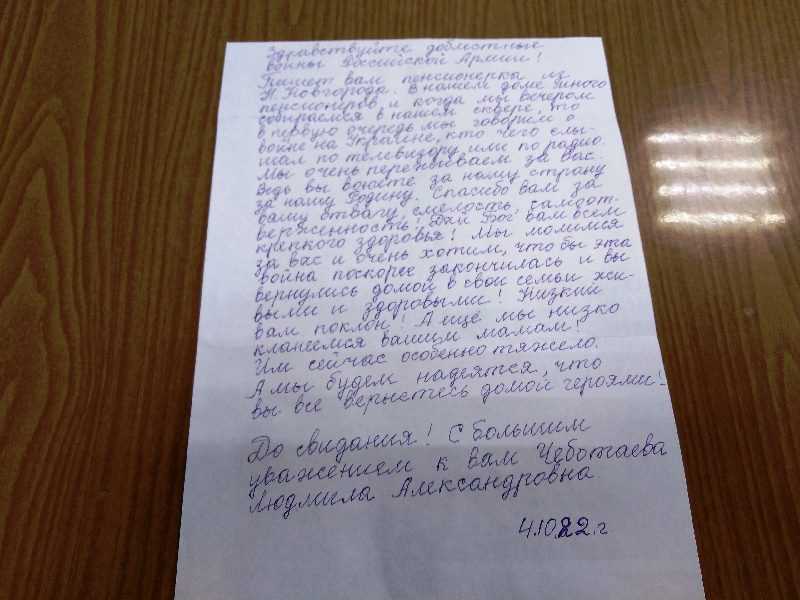 Здравствуйте доблестные
воины Российской Армии!
Пишет вам пенсионерка из
Н. Новгорода. В нашем доме много
пенсионеров и когда мы вечером
собираемся в нашем сквере, то
в первую очередь мы говорим о
войне на Украине, кто чего слы-
шал по телевизору или по радио.
Мы очень переживаем за вас.
Ведь вы воюете за нашу страну
за нашу Родину. Спасибо вам за
вашу отвагу, смелость, самоот-
верженность! Дай Бог вам всем
крепкого здоровья! Мы молимся
за вас и очень хотим, что бы эта
война поскорее закончилась и вы
вернулись домой в свои семьи жи-
выми и здоровыми! Низкий
вам поклон! А ещё мы низко
кланяемся вашим мамам!
Им сейчас особенно тяжело.
А мы будем надеятся, что
вы все вернетесь домой героями!
До свидания! С большим
уважением к вам Чеботаева
Людмила Александровна
4.10.22.г